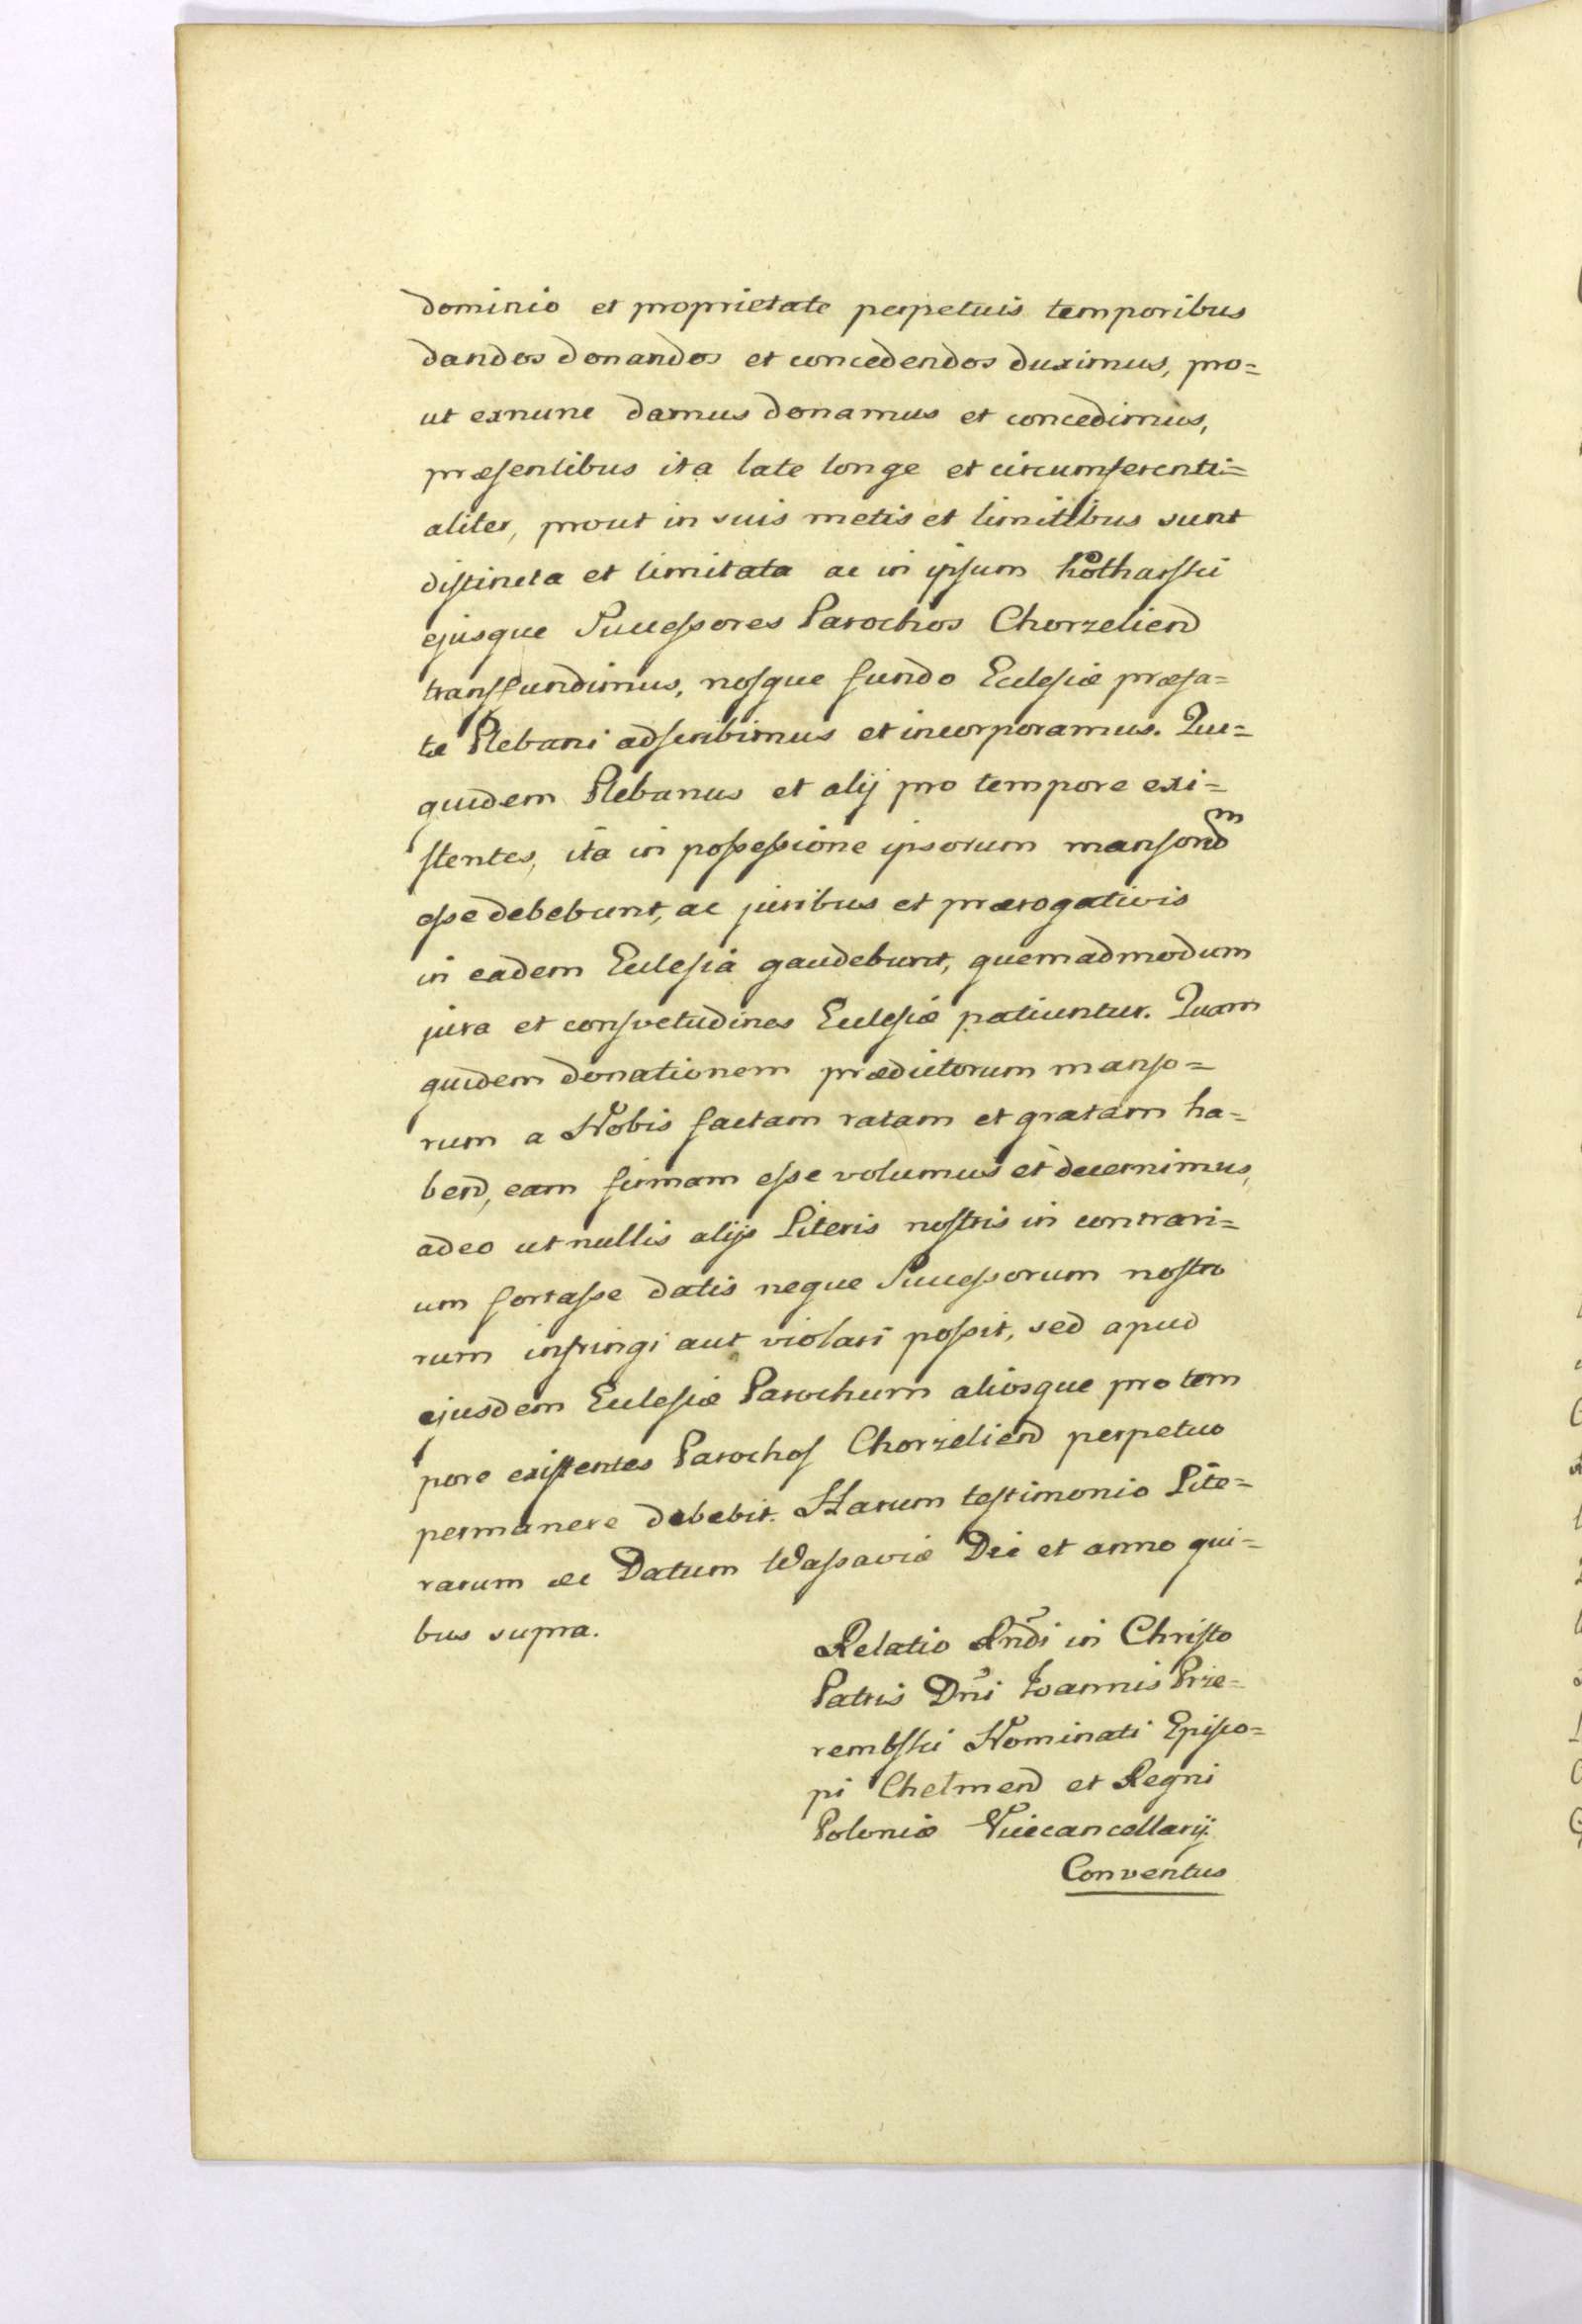 dominio et proprietate perpetuis temporibus
dandos donandos et concedendos duximus, pro=
ut exnunc damus donamus et concedimus,
præsentibus ita late longe et circumferenti=
aliter, prout in suis metis et limitibus sunt
distincta et limitata ac in ipsum Kotharski
ejusque Successores Parochos Chorzelien
transfundimus, nosque fundo Eclesiæ præfa=
tæ Plebani adscribimus et incorporamus. Qui=
quidem Plebanus et alij pro tempore exi=
stentes, ita in possessione ipsorum mansor͠m
esse debebunt, ac juribus et prærogativis
in eadem Eclesia gaudebunt, quemadmodum
jura et consvetudines Eclesiæ patiuntur. Quam
quidem donationem prædictorum manso=
rum a Nobis factam ratam et gratam ha=
ben, eam firmam esse volumus et decernimus,
adeo ut nullis alijs Literis nostris in contrari=
um fortasse datis neque Successorum nostro
rum infringi aut violari possit, sed apud
ejusdem Eclesiæ Parochum aliosque pro tem
pore existentes Parochos Chorzelien perpetuo
permanere debebit. Harum testimonio Lite=
rarum æc Datum Wassaviæ Die et anno qui=
bus supra.
Relatio Rndi in Christo
Patris Dni Ioannis Prze=
rembski Nominati Episco=
pi Chelmen et Regni
Poloniæ Vicecancellarij.
Conventus